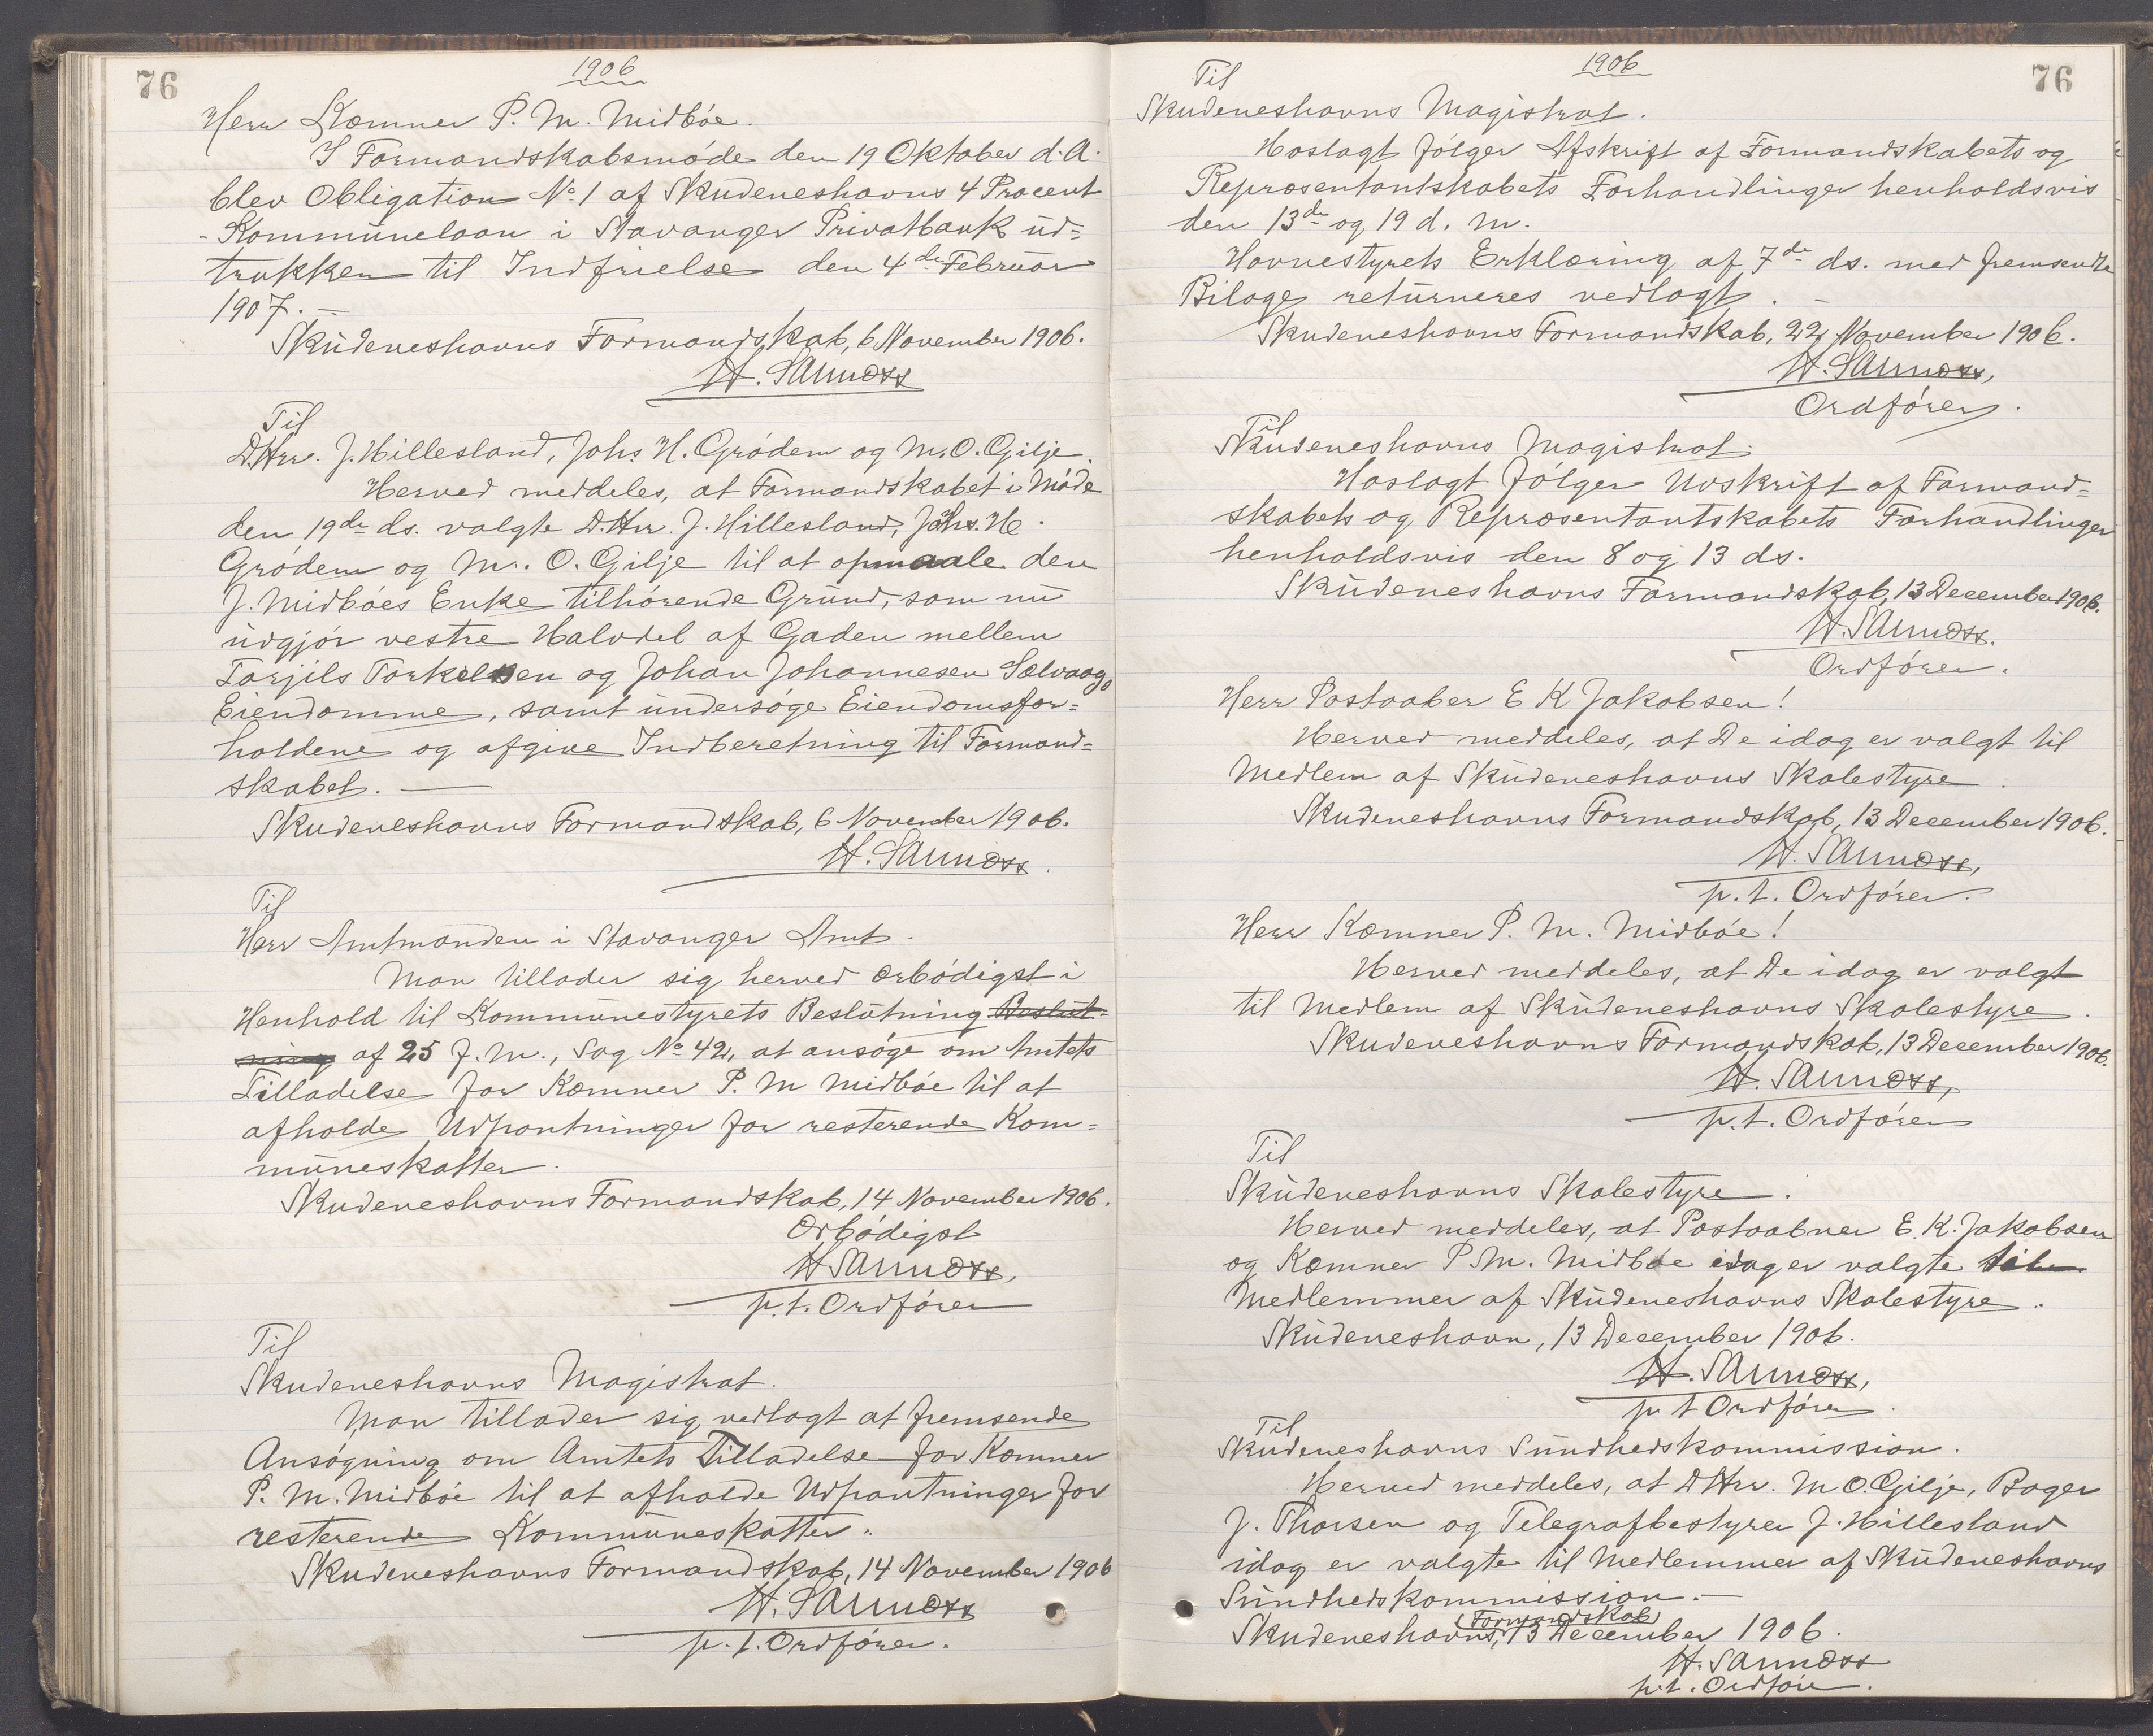 76
1906
Herr Kæmner P. M. Midbøe.
I Formandskabsmøde den 19 Oktober d. A.
blev Obligation No 1 af Skudeneshavns 4 Procent
Kommunelaan i Stavanger Privatbank ud=
trukken til Indfrielse den 4de Februar
1907. —
Skudeneshavns Formandskab, 6 November 1906.
Til
D.Hrr. J. Hillesland, Johs. H. Grødem og M. O. Gilje.
Herved meddeles, at Formandskabet i Møde
den 19de ds. valgte D.Hrr. J. Hillesland, Johs. H.
Grødem og M. O. Gilje til at opmaale den
J. Midbøes Enke tilhørende Grund, som nu
udgjør vestre Halvdel af Gaden mellem
Torjils Torkelsen og Johan Johannesen Sælvaags
Eiendomme, samt undersøge Eiendomsfor=
holdene og afgive Indberetning til Formand=
skabet. —
Skudeneshavns Formandskab, 6 November 1906.
Til
Herr Amtmanden i Stavanger Amt.
Man tillader sig herved ærbødigst i
Henhold til Kommunestyrets Beslutning Beslut=
ning af 25 f. M., Sag No 42, at ansøge om Amtets
Tilladelse for Kæmner P. M Midbøe til at
afholde Udpantninger for resterende Kom=
muneskatter.
Skudeneshavns Formandskab, 14 November 1906.
Ærbødigst
p. t. Ordfører
Til
Skudeneshavns Magistrat.
Man tillader sig vedlagt at fremsende
Ansøgning om Amtets Tilladelse for Kæmner
P. M. Midbøe til at afholde Udpantninger for
resterende Kommuneskatter.
Skudeneshavns Formandskab, 14 November 1906
p. t. Ordfører.
1906
76
Til
Skudeneshavns Magistrat.
Hoslagt følger Afskrift af Formandskabets og
Repræsentantskabets Forhandlinger henholdsvis
den 13de og 19 d. M.
Havnestyrets Erklæring af 7de ds. med fremsendte
Bilage returneres vedlagt. —
Skudeneshavns Formandskab, 22 November 1906.
Ordfører.
Til
Skudeneshavns Magistrat.
Hoslagt følger Udskrift af Formand=
skabets og Repræsentantskabets Forhandlinger
henholdsvis den 8 og 13 ds.
Skudeneshavns Formandskab, 13 December 1906.
Ordfører.
Herr Postaaber E K Jakobsen!
Herved meddeles, at De idag er valgt til
Medlem af Skudeneshavns Skolestyre.
Skudeneshavns Formandskab, 13 December 1906.
p. t. Ordfører.
Herr Kæmner P. M. Midbøe!
Herved meddeles, at De idag er valgt
til Medlem af Skudeneshavns Skolestyre.
Skudeneshavns Formandskab, 13 December 1906.
p. t. Ordfører
Til
Skudeneshavns Skolestyre.
Herved meddeles, at Postaabner E. K. Jakobsen
og Kæmner P. M. Midbøe idag er valgte til
Medlemmer af Skudeneshavns Skolestyre.
Skudeneshavn, 13 December 1906.
p t Ordfører.
Til
Skudeneshavns Sundhedskommission.
Herved meddeles, at DHrr. M O. Gilje, Bager
J. Thorsen og Telegrafbestyrer J. Hillesland
idag er valgte til Medlemmer af Skudeneshavns
Sundhedskommission. —
(Formandskab)
Skudeneshavns, 13 December 1906.
p. t. Ordfører.